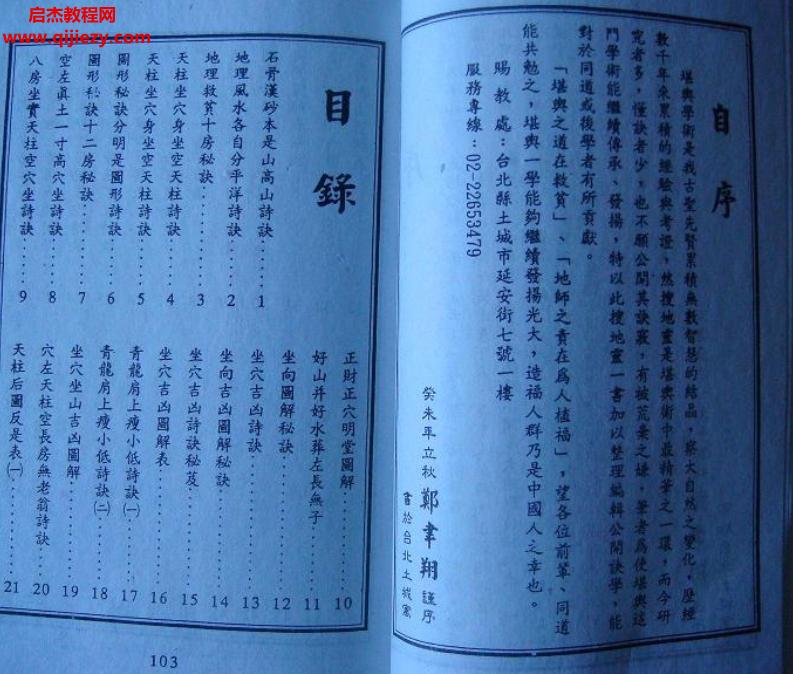 启杰教程网
www.qijiezy.com
自序
堪輿學術是我古聖先賢累積無數智慧的結晶，察大自然之變化，歷經
數千年來累積的經驗與考證，然搜地靈是堪輿術中最精華之一環，而今研
究者多，懂訣者少，也不願公開其訣竅，有被荒棄之嫌，筆者為使堪輿這
門學術能繼續傳承、發揚，特以此搜地靈一書加以整理編輯公開訣學，能
對於同道或後學者有所貢獻。
「堪輿之道在救貧」、「地師之責在為人植福」，望各位前輩、同道
能共勉之，堪輿一學能夠繼續發揚光大，造福人群乃是中國人之幸也。
賜教處：台北縣土城市延安街七號一樓
服務專線：02-22653479
癸未年立秋 鄭聿翔 謹序
書於台北土城寓
目錄
石骨漢砂本是山高山詩訣 1
地理風水各自分平洋詩訣 2
地理救貧十房秘訣 3
天柱坐穴身坐空天柱詩訣 4
天柱坐穴身坐空天柱詩訣 5
圖形秘訣分明是圖形詩訣 6
圖形秘訣十二房秘訣 7
空左真土一寸高穴坐詩訣 8
八房坐實天柱空穴坐詩訣 9
正財正穴明堂圖解 10
好山并好水葬左長無子 11
坐向圖解秘訣 12
坐穴吉凶詩訣 13
坐向吉凶圖解秘訣 14
坐穴吉凶詩訣秘笈 15
坐穴吉凶圖解表 16
青龍肩上瘦小低詩訣㈠ 17
青龍肩上瘦小低詩訣㈡ 18
坐穴坐山吉凶圖解 19
穴左天柱空長房無老翁詩訣 20
天柱后圖反是表㈠ 21
103